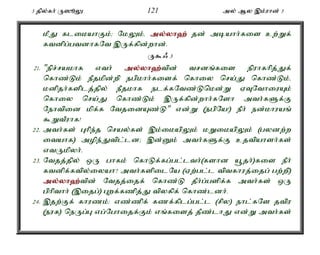 3 தில்கர் ருஸூலு 121 அல் ஆல இம்ரான் 3
மீது கடமையாகும்; மேலும், அல்லாஹ் தன் அடியார்களை உற்றுக்
கவனிப்பவனாகவே இருக்கின்றான்.
ருகூஃ 3
21. "நிச்சயமாக எவர் அல்லாஹ்வின் வசனங்களை நிராகரித்துக்
கொண்டும் நீதமின்றி நபிமார்களைக் கொலை செய்து கொண்டும்,
மனிதர்களிடத்தில் நீதமாக நடக்கவேண்டுமென்று ஏவுவோரையும்
கொலை செய்து கொண்டும் இருக்கின்றார்களோ அவர்களுக்கு
நோவினை மிக்க வேதனையுண்டு" என்று (நபியே) நீர் நன்மாராயங்
கூறுவீராக!
22. அவர்கள் புரிந்த செயல்கள் இம்மையிலும் மறுமையிலும் (பலனற்ற
வையாக) அழிந்துவிட்டன; இன்னும் அவர்களுக்கு உதவியாளர்கள்
எவருமிலர்.
23. வேதத்தில் ஒரு பாகம் கொடுக்கப்பட்டவர்(களான யூதர்)களை நீர்
கவனிக்கவில்லையா? அவர்களிடையே (ஏற்பட்ட விவகாரத்தைப் பற்றி)
அல்லாஹ்வின் வேதத்தைக் கொண்டு தீர்ப்பளிக்க அவர்கள் ஒரு
பிரிவார் (இதைப்) புறக்கணித்து விலகிக் கொண்டனர்.
24. இதற்குக் காரணம்: எண்ணிக் கணக்கிடப்பட்ட (சில) நாட்களே தவிர
(நரக) நெருப்பு எப்போதைக்கும் எங்களைத் தீண்டாது என்று அவர்கள்